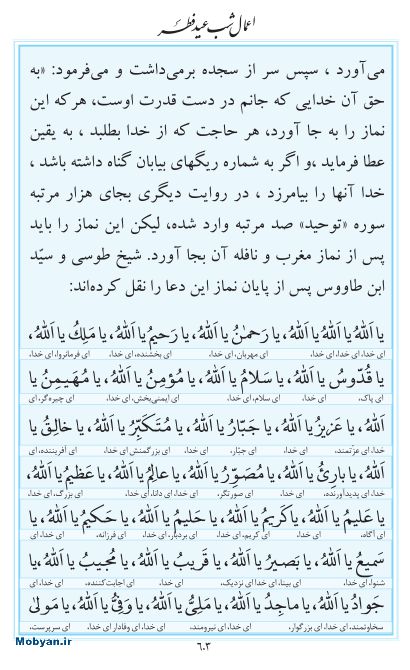 اعمال شب عید فطر
می‌آورد ، سپس سر از سجده برمی‌داشت و می‌فرمود: «به
حق آن خدایی که جانم در دست قدرت اوست، هرکه این
نماز را به جا آورد، هر حاجت که از خدا بطلبد ، به یقین
عطا فرماید ،و اگر به شماره ریگهای بیابان گناه داشته باشد ،
خدا آنها را بیامرزد ، در روایت دیگری بجای هزار مرتبه
سوره «توحید» صد مرتبه وارد شده، لیکن این نماز را باید
پس از نماز مغرب و نافله آن بجا آورد. شیخ طوسی و سیّد
ابن طاووس پس از پایان نماز این دعا را نقل کرده‌اند:
یا اَللهُ یا اَللهُ یا اَللهُ، یا رَحمٰنُ یا اَللهُ، یا رَحیمُ یا اَللهُ، یا مَلِكُ یا اَللهُ،
ای خدا، ای خدا، ای خدا، ای مهربان، ای خدا، ای بخشنده، ای خدا، ای فرمانروا، ای خدا،
یا قُدّوسُ یا اَللهُ، یا سَلامُ یا اَللهُ، یا مُؤمِنُ یا اَللهُ، یا مُهَیمِنُ یا
ای پاک، ای خدا، ای سلام، ای خدا، ای ایمنی‌بخش، ای خدا، ای چیره‌گر، ای
اَللهُ، یا عَزیزُ یا اَللهُ، یا جَبّارُ یا اَللهُ، یا مُتَکَبِّرُ یا اَللهُ، یا خالِقُ یا
خدا، ای عزّتمند، ای خدا، ای جبّار، ای خدا، ای بزرگمنش، ای خدا، ای آفریننده، ای
اَللهُ، یا بارِئُ یا اَللهُ، یا مُصَوِّرُ یا اَللهُ، یا عالِمُ یا اَللهُ، یا عَظیمُ یا اَللهُ،
خدا، ای پدیدآورنده، ای خدا، ای صورتگر، ای خدا، ای دانا، ای خدا، ای بزرگ، ای خدا،
یا عَلیمُ یا اَللهُ، یا کَریمُ یا اَللهُ، یا حَلیمُ یا اَللهُ، یا حَکیمُ یا اَللهُ، یا
ای آگاه، ای خدا، ای کریم، ای خدا، ای بردبار، ای خدا، ای فرزانه، ای خدا، ای
سَمیعُ یا اَللهُ، یا بَصیرُ یا اَللهُ، یا قَریبُ یا اَللهُ، یا مُجیبُ یا اَللهُ، یا
شنوا، ای خدا، ای بینا، ای خدا، ای نزدیک، ای خدا، ای اجابت‌کننده، ای خدا، ای
جَوادُ یا اَللهُ، یا ماجِدُ یا اَللهُ، یا مَلِیُّ یا اَللهُ، یا وَفِیُّ یا اَللهُ، یا مَولیٰ
سخاوتمند، ای خدا، ای بزرگوار، ای خدا، ای نیرومند، ای خدا، ای وفادار، ای خدا، ای سرپرست،
۶۰۳
Mobyan.ir